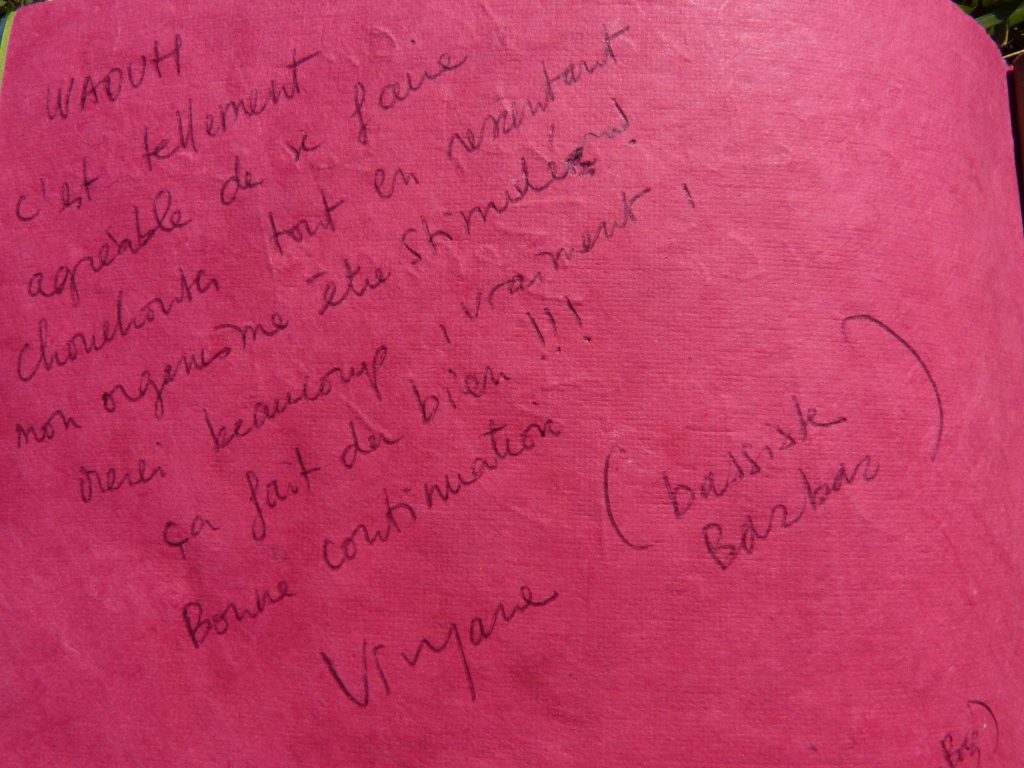 WAOUH
c'est tellement
agréable de se faire
chouchouter tout en ressentant
mon organisme être stimulé !
merci beaucoup, vraiment,
ça fait du bien !!!
Bonne continuation
(bassiste
Barbar)